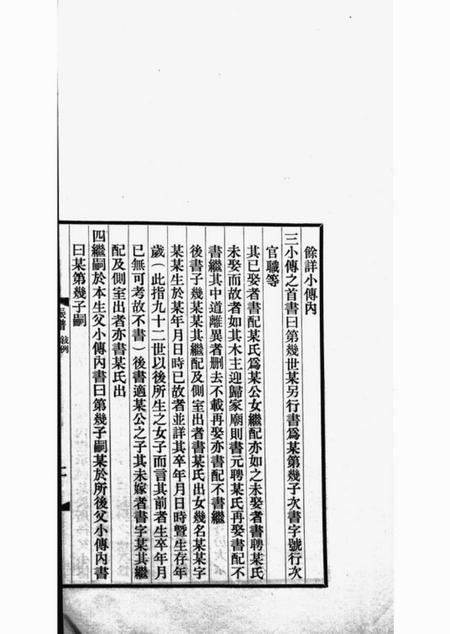 餘詳小傳內
三小傳之首書曰第幾世某另行書爲某第幾子次書字號行次
官職等
其已娶者書配某氏爲某公女繼配亦如之未娶者書聘某氏
未娶而故者如其木主迎歸家廟則書元聘某氏再娶書配不
書繼其中道離異者删去不載再娶亦書配不書繼
後書子幾某某某其繼配及側室出者書某氏出女幾名某某字
某某生於某年月日時已故者並詳其卒年月日時暨生存年
歲（此指九十二世以後所生之女子而言其前者生卒年月
已無可考故不書）後書適某公之子其未嫁者書字某其繼
配及側室出者亦書某氏出
四繼嗣於本生父小傳內書曰第幾子嗣某於所後父小傳內書
曰某第幾子嗣